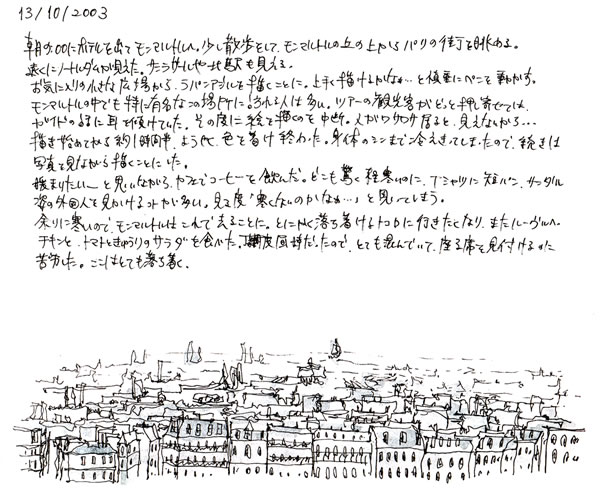 13/10/2003
朝9:00にホテルを出てモンマルトルへ。少し散歩をして、モンマルトルの丘の上からパリの街を眺める。
遠くにノートルダムが見えた。サンラザールや北駅も見える。
お気に入りの小さな広場から、ラパンアジルを描くことに。上手く描けるかなぁ…と慎重にペンを動かす。
モンマルトルの中でも特に有名なこの場所に訪れる人は多い。ツアーの観光客がどっと押し寄せては、
ガイドの話に耳を傾けていた。その度に絵を描くのを中断。人がワサワサ居ると、見えないから…
描き始めてから約1時間半、ようやく色を着け終わった。身体のシンまで冷えきってしまったので、続きは
写真を見ながら描くことにした。
暖まりたい〜と思いながら、カフェでコーヒーを飲んだ。どこも驚く程寒いのに、Tシャツに短パン、サンダル
姿の外国人を見かけることが多い。見る度「寒くないのかなぁ…」と思ってしまう。
余りに寒いので、モンマルトルはこれで終えることに。とにかく落ち着けるトコロに行きたくなり、またルーヴルへ。
チキンと、トマトときゅうりのサラダを食べた。丁度昼時だったので、とても混んでいて、座る席を見付けるのに
苦労した。ここはとても落ち着く。